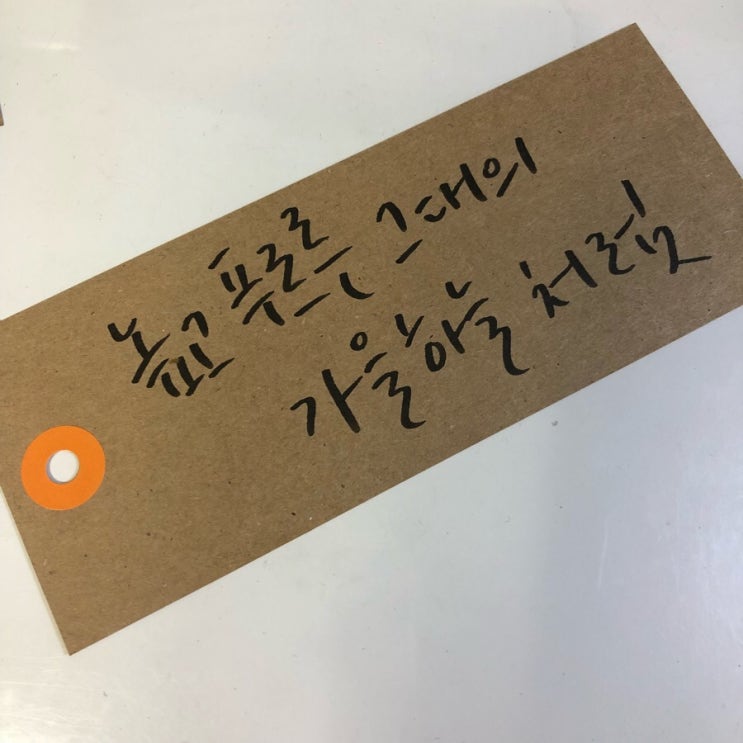 높고 푸르른 그대의
가을하늘 처럼